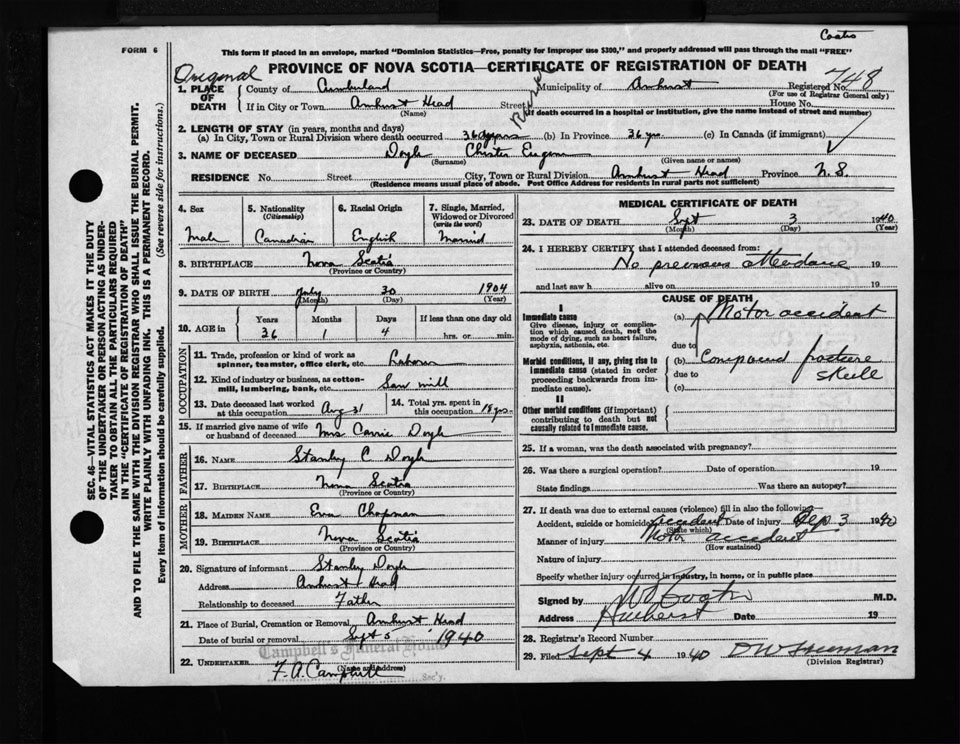 Coates
FORM 6
This form if placed in an envelope, marked "Dominion Statistics—Free, penalty for improper use $300," and properly addressed will pass through the mail "FREE"
PROVINCE OF NOVA SCOTIA—CERTIFICATE OF REGISTRATION OF DEATH
Original
748
1. PLACE OF DEATH
County of Cumberland Municipality of Amherst Registered No.
(For use of Registrar General only)
If in City or Town Amherst Head Street House No.
(Name) (If death occurred in a hospital or institution, give the name instead of street and number)
2. LENGTH OF STAY (in years, months and days)
(a) In City, Town or Rural Division where death occurred 36 years (b) In Province 36 yrs. (c) In Canada (if immigrant)
3. NAME OF DECEASED Doyle Chester Eugene
(Surname) (Given name or names)
RESIDENCE No. Street City, Town or Rural Division Amherst Head Province N.S.
(Residence means usual place of abode. Post Office Address for residents in rural parts not sufficient)
4. Sex
Male
5. Nationality (Citizenship)
Canadian
6. Racial Origin
English
7. Single, Married, Widowed or Divorced (write the word)
Married
8. BIRTHPLACE Nova Scotia
(Province or Country)
9. DATE OF BIRTH July 30 1904
(Month) (Day) (Year)
10. AGE in Years Months Days If less than one day old
36 1 4 hrs. or min.
OCCUPATION
11. Trade, profession or kind of work as spinner, teamster, office clerk, etc. Labour
12. Kind of industry or business, as cotton-mill, lumbering, bank, etc. Saw mill
13. Date deceased last worked at this occupation Aug 31
14. Total yrs. spent in this occupation 18 yrs.
15. If married give name of wife or husband of deceased Mrs Carrie Doyle
FATHER
16. NAME Stanley C Doyle
17. BIRTHPLACE Nova Scotia
(Province or Country)
MOTHER
18. MAIDEN NAME Eva Chapman
19. BIRTHPLACE Nova Scotia
(Province or Country)
20. Signature of informant Stanley Doyle
Address Amherst Head
Relationship to deceased Father
21. Place of Burial, Cremation or Removal Amherst Head
Date of burial or removal Sept 5 1940
Campbell's Funeral Home
22. UNDERTAKER F. A. Campbell
(Name and address)
Sec'y.
MEDICAL CERTIFICATE OF DEATH
23. DATE OF DEATH Sept 3 1940
(Month) (Day) (Year)
24. I HEREBY CERTIFY that I attended deceased from:
No previous attendance 19
and last saw h alive on 19
CAUSE OF DEATH
I
Immediate cause
Give disease, injury or complication which caused death, not the mode of dying, such as heart failure, asphyxia, asthenia, etc.
(a) Motor accident
due to
Morbid conditions, if any, giving rise to immediate cause (stated in order proceeding backwards from immediate cause).
(b) Compound fracture skull
due to
(c)
II
Other morbid conditions (if important) contributing to death but not causally related to immediate cause.
25. If a woman, was the death associated with pregnancy?
26. Was there a surgical operation? Date of operation 19
State findings Was there an autopsy?
27. If death was due to external causes (violence) fill in also the following—
Accident, suicide or homicide accident Date of injury Sep. 3 1940
(State which)
Manner of injury Motor accident
(How sustained)
Nature of injury
Specify whether injury occurred in industry, in home, or in public place
Signed by M.D.
Address Amherst Date 19
28. Registrar's Record Number
29. Filed Sept 4 1940 D W Freeman
(Division Registrar)
SEC. 46—VITAL STATISTICS ACT MAKES IT THE DUTY
OF THE UNDERTAKER OR PERSON ACTING AS UNDER-
TAKER TO OBTAIN ALL THE PARTICULARS REQUIRED
IN THE "CERTIFICATE OF REGISTRATION OF DEATH"
AND TO FILE THE SAME WITH THE DIVISION REGISTRAR WHO SHALL ISSUE THE BURIAL PERMIT.
WRITE PLAINLY WITH UNFADING INK. THIS IS A PERMANENT RECORD.
Every item of information should be carefully supplied. (See reverse side for instructions.)